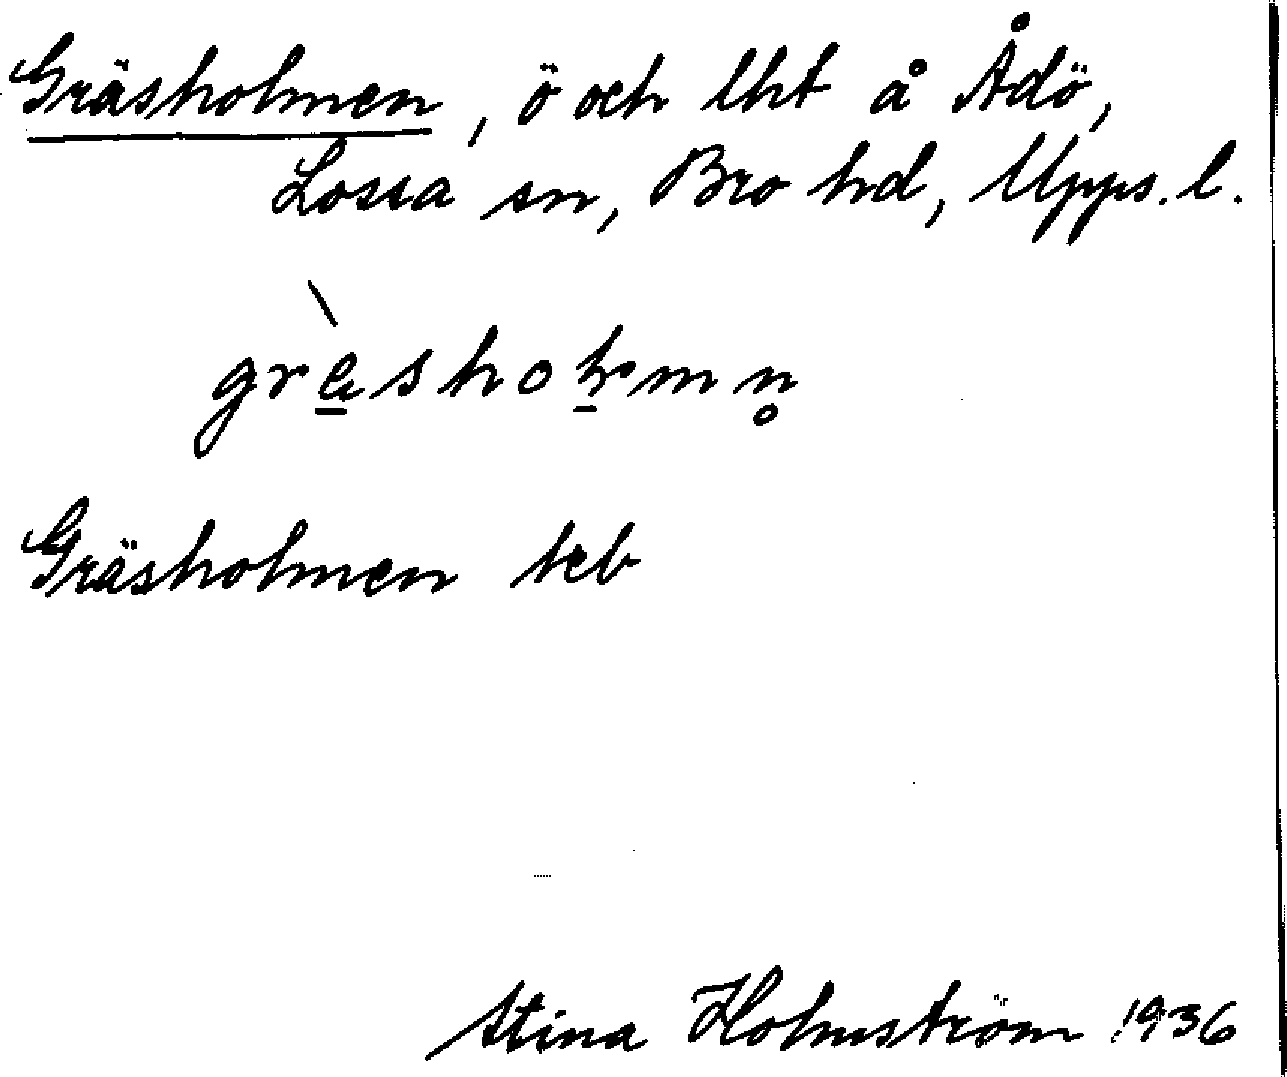 Gräsholmen, ö och lht å Ådö,
Lossa sn, Bro hd, Upps. l.
Gräsholmen teb
Stina Holmström 1936